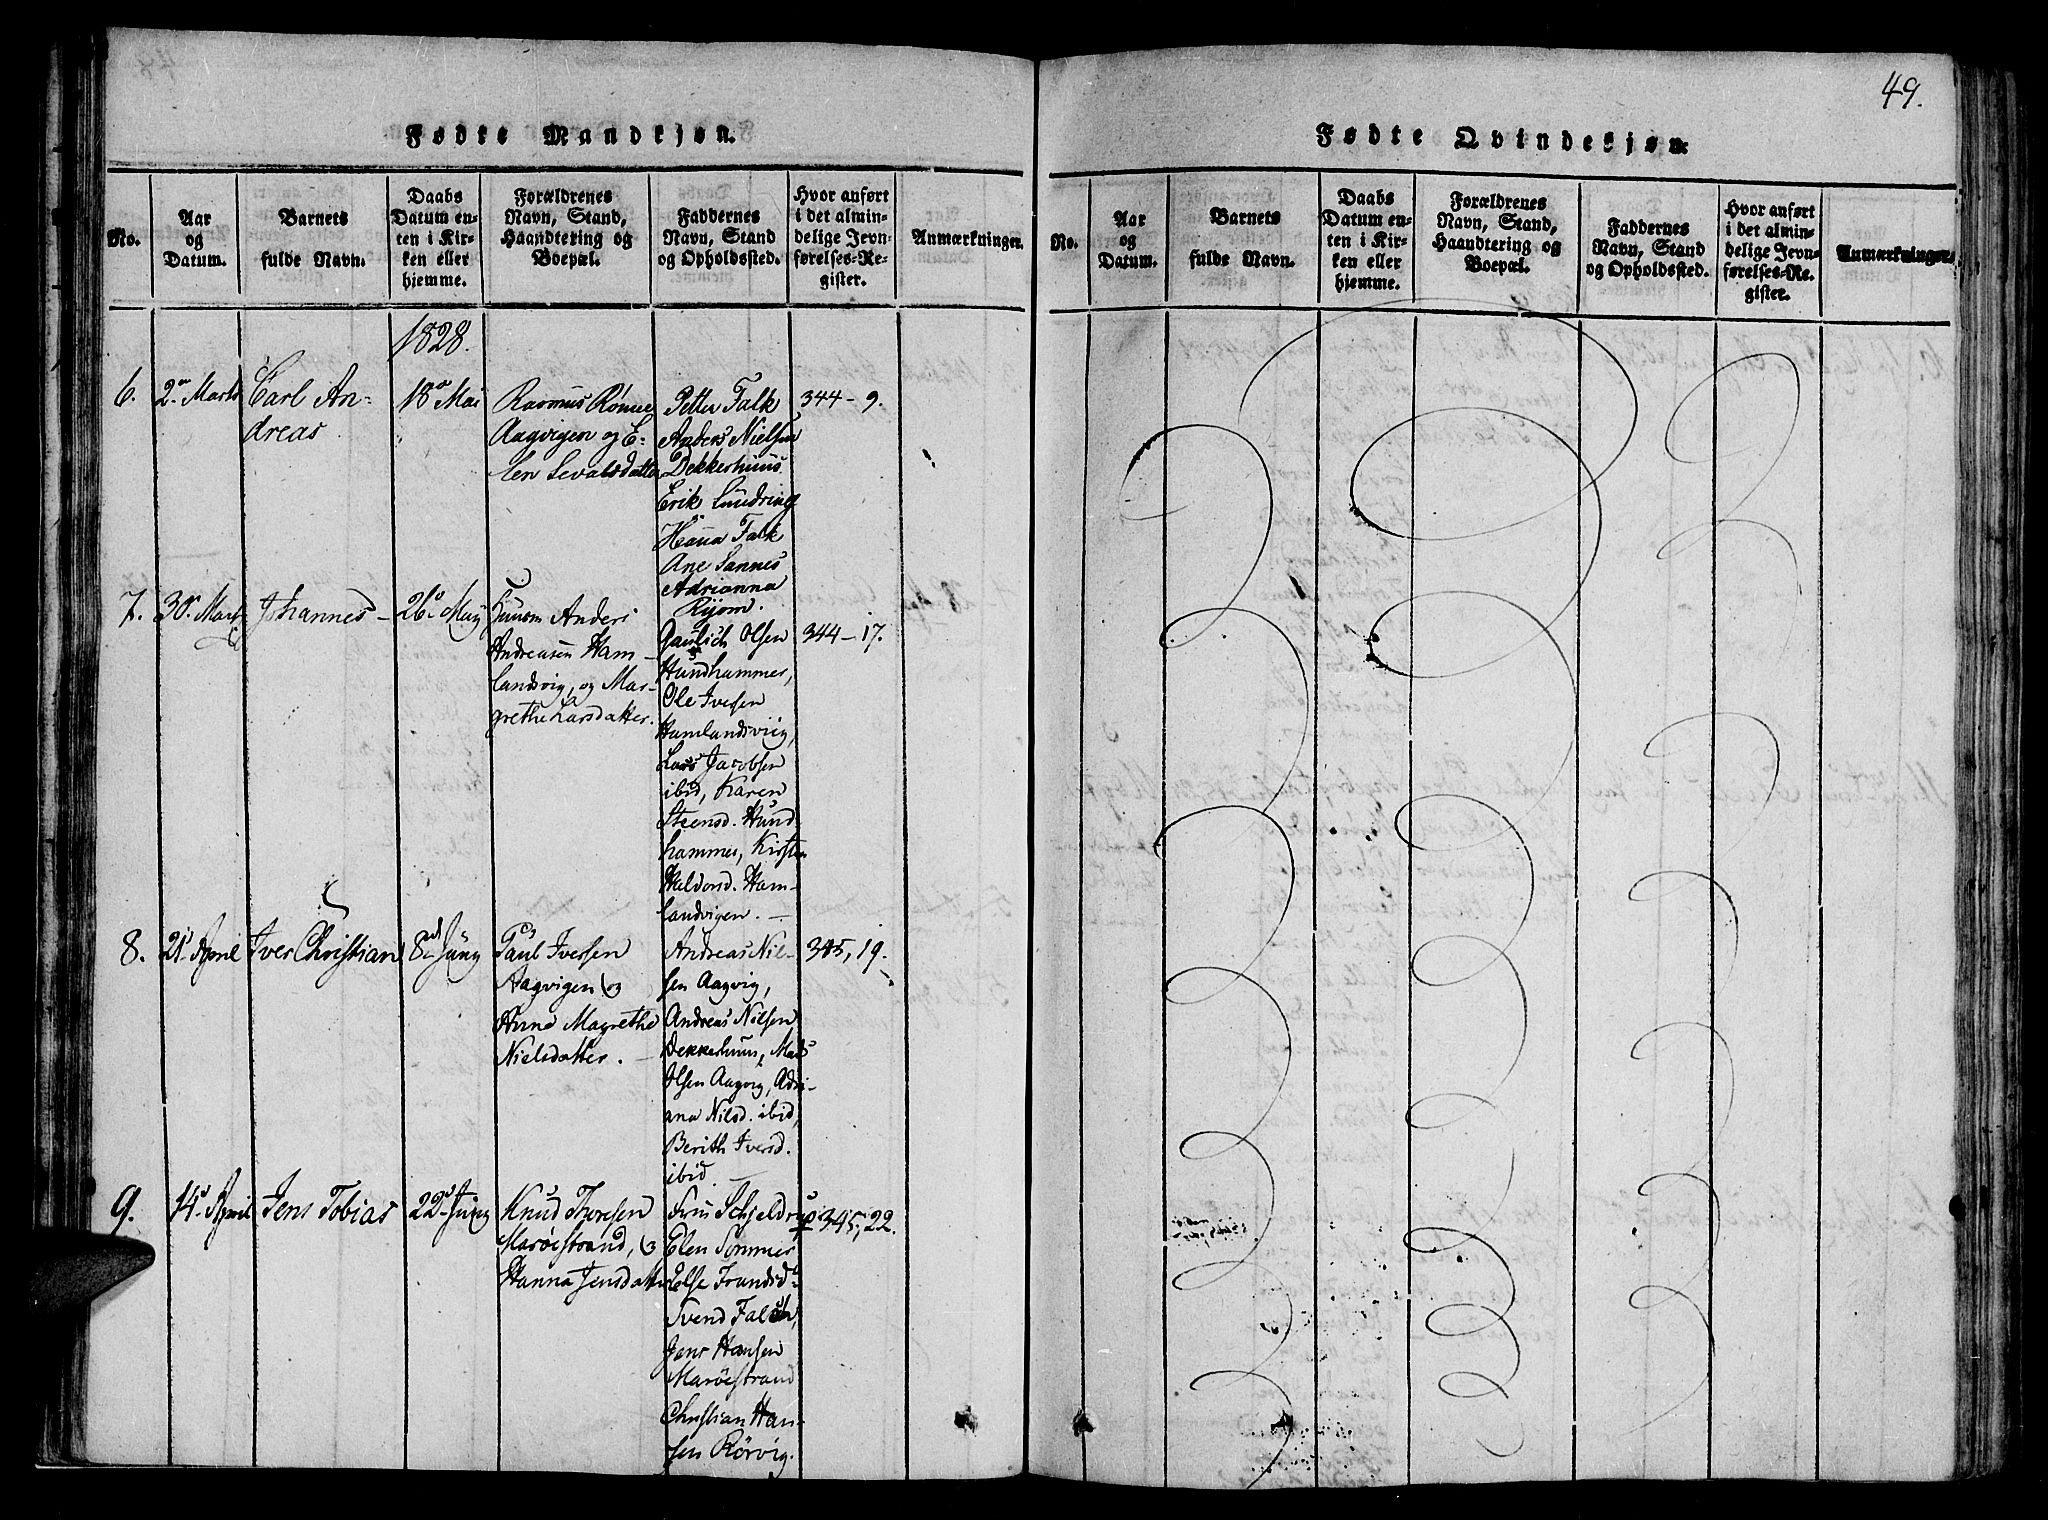 49.
Fødte Mandkjøn.
No.
Aar
og
Datum.
Barnets
fulde Navn.
Daabs
Datum en-
ten i Kir-
ken eller
hjemme.
Forældrenes
Navn, Stand,
Haandtering og
Boepæl.
Faddernes
Navn, Stand
og Opholdssted.
Hvor anført
i det almin-
delige Jevn-
førelses-Re-
gister.
Anmærkninger.
1828.
6.
2den Marts
Carl An-
dreas
18de Mai
Rasmus
Aagvigen og E-
len Sevaldsdatter
Petter Falk
Anders Nielsen
Dekkerhuus
Erik Lundring
Hanna Falk
Ane Sannes
Adrianna
Ryom.
344 - 9.
7.
30. Marts
Johannes -
26. May
Huusm Anders
Andreasen Ham-
landsvig, og Mar-
grethe Larsdatter.
Gaulich Olsen
Hundhammer,
Ole Iversen
Hamlandsviig,
Lars Jacobsen
ibid, Karen
Steensd. Hund
hammer, Kirsten
Haldorsd. Ham-
landvigen. -
344 - 17.
8.
21. April
Iver Christian
8de Juny
Paul Iversen
Aagvigen og
Anne Magrethe
Nielsdatter. -
Andreas Nil-
sen Aagvig,
Andreas Nilsen
Dekkerhuus, Mads
Olsen Aagvig, Adri-
ana Nilsd. ibid,
Berith Iversd.
ibid. -
345, 19.
9.
14. April
Jens Tobias
22. Juny
Knud Thoresen
Marøestrand, og
Hanna Jensdatter
Frue Schjeldrup
Elen Sommer
Else Frandsd.
Svend Falch,
Jens Hansen
Marøestrand
Christian Han-
sen Rørvig.
345, 22.
Fødte Qvindekjøn.
No.
Aar
og
Datum.
Barnets
fulde Navn.
Daabs
Datum en-
ten i Kir-
ken eller
hjemme.
Forældrenes
Navn, Stand,
Haandtering og
Boepæl.
Faddernes
Navn, Stand
og Opholdssted.
Hvor anført
i det almin-
delige Jevn-
førelses-Re-
gister.
Anmærkninger.